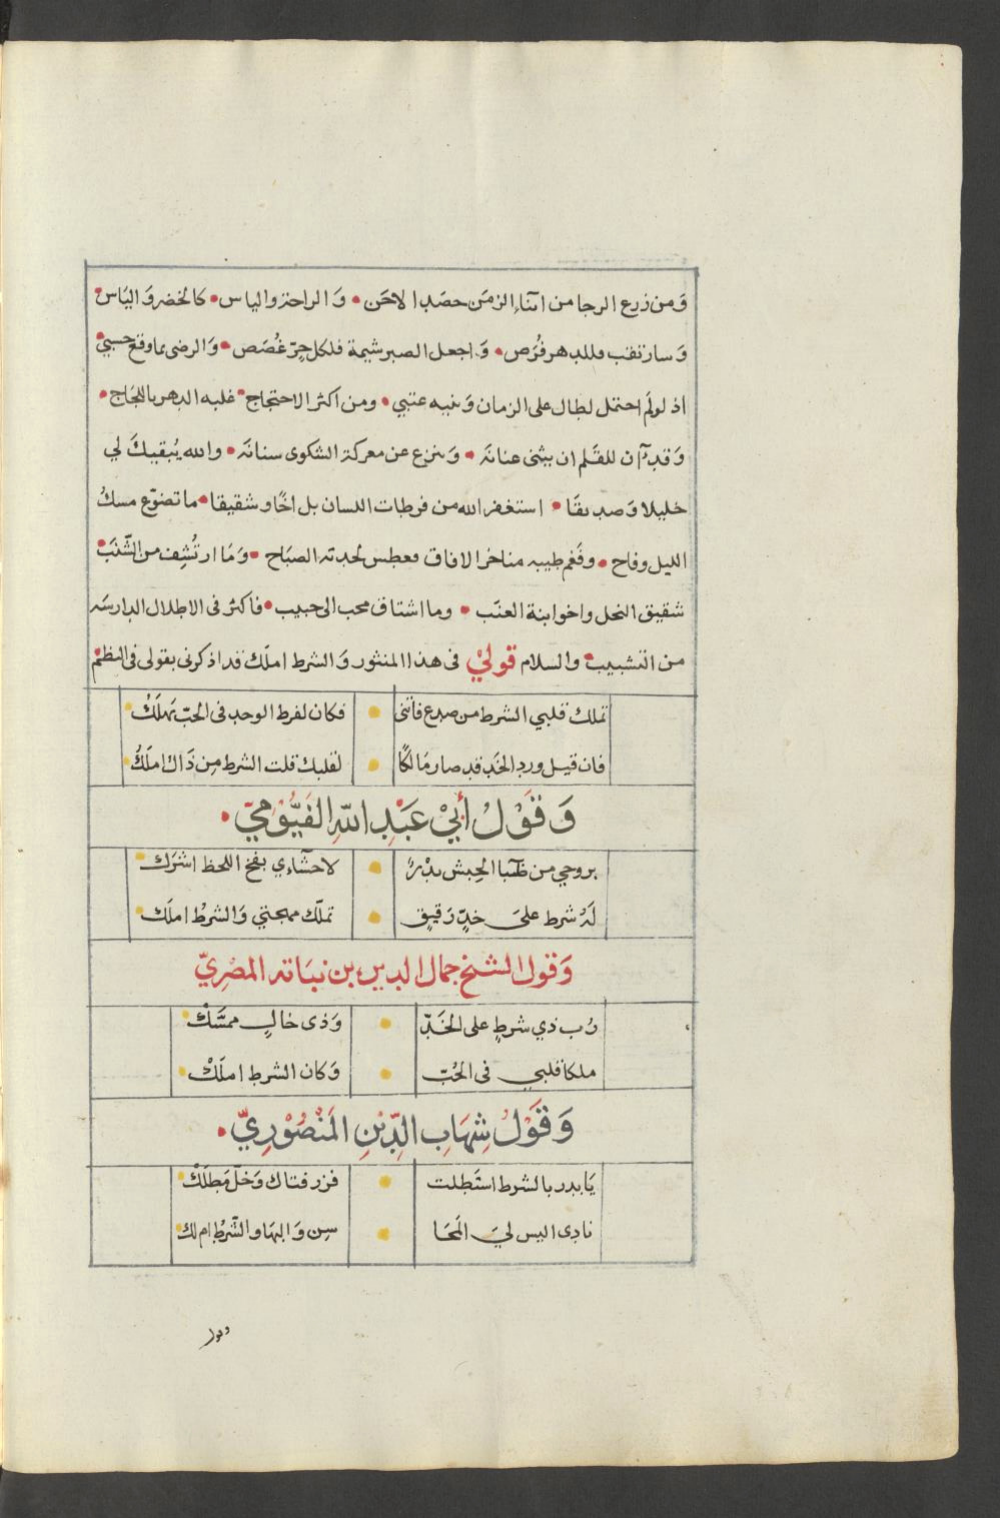 وَمن زرع الرجا من اثناء الزمن حصَد الاحَن • وَالراحة والياس • كالخضر وَاليَاس •
وَسارتقب فللدهر فُرَص • وَاجعل الصبر شيمة فلكل حِرّ غُصَص • وَالرضى بما وقع حسبيْ
اذ لولَم احتمل لطال على الزمان وَبنيه عتبي • ومن اكثر الاحتجاج • غلبه الدهر باللجَاج •
وَقد آن للقَلم ان يثنى عنانَه • وَينزع عن معركة الشكوى سنانَه • والله يُبقيكَ لي
خليلا وَصديقَا • استغفر الله من فرطات اللسان بل اخًا وشقيقا • ما تضوّع مسكُ
الليل وفاح • وفَغم طيبه مناخر الافاق فعطس لحدته الصبَاح • وَمَا ارتُشِف من الشّنَبْ
شقيق النحل واخو ابنة العنَب • وما اشتاق محب الى حبيب • فاكثر فى الاطلال الدارسَه
من التشبيب • والسلام قوليْ فى هذا المنثور وَالشرط املَك قد اذكرنى بقولى فى النظم •
تملك قلبي الشرط من صدغ فاتنى • فكان لفرط الوجد فى الحبّ يَهلَكُ •
فان قيل ورد الخَد قد صار مَالكًا • لقلبك قلت الشرط مِن ذَاك املَكُ •
وَقَوْلُ أَبيْ عَبْدِ اللهِ الفَيُّوْمِيّ •
بروحي من ظبا الحِبش بدْرٌ • لاحشاءي بفخ اللحظ اشرَك •
لَهُ شرط علىَ خدٍّ رَقيقٍ • تملّك مهجتي وَالشرْط املَك •
وَقول الشيخ جمال الدين بن نبَاته المصْرِيّ
رُب ذي شرطٍ على الخَدّ • وَذى خالٍ ممسَّكْ •
ملكا قلبي فى الحُبّ • وَكان الشرط املَكْ •
وَقَوْلُ شِهَابِ الدِّيْنِ المَنْصُوْرِيّ •
يَا بدر بالشرط استَطلت • فزر فتاك وَخلّ مَطلَكْ •
نادى اليس ليَ المحَا • سِن وَالبهَا والشَّرْط ام لك •
وقول